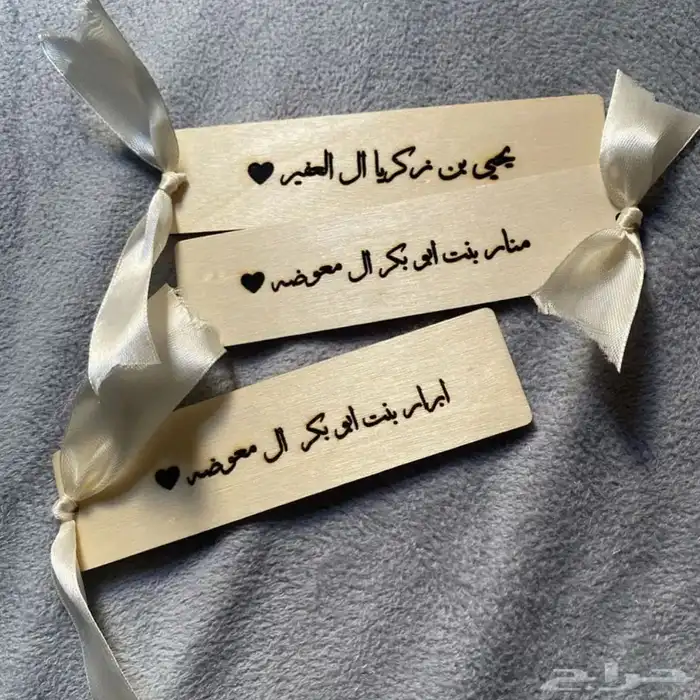 يحيى بن زكريا ال العفير ♥
منار بنت ابو بكر ال معوضه ♥
ابرار بنت ابو بكر ال معوضه ♥
حراج